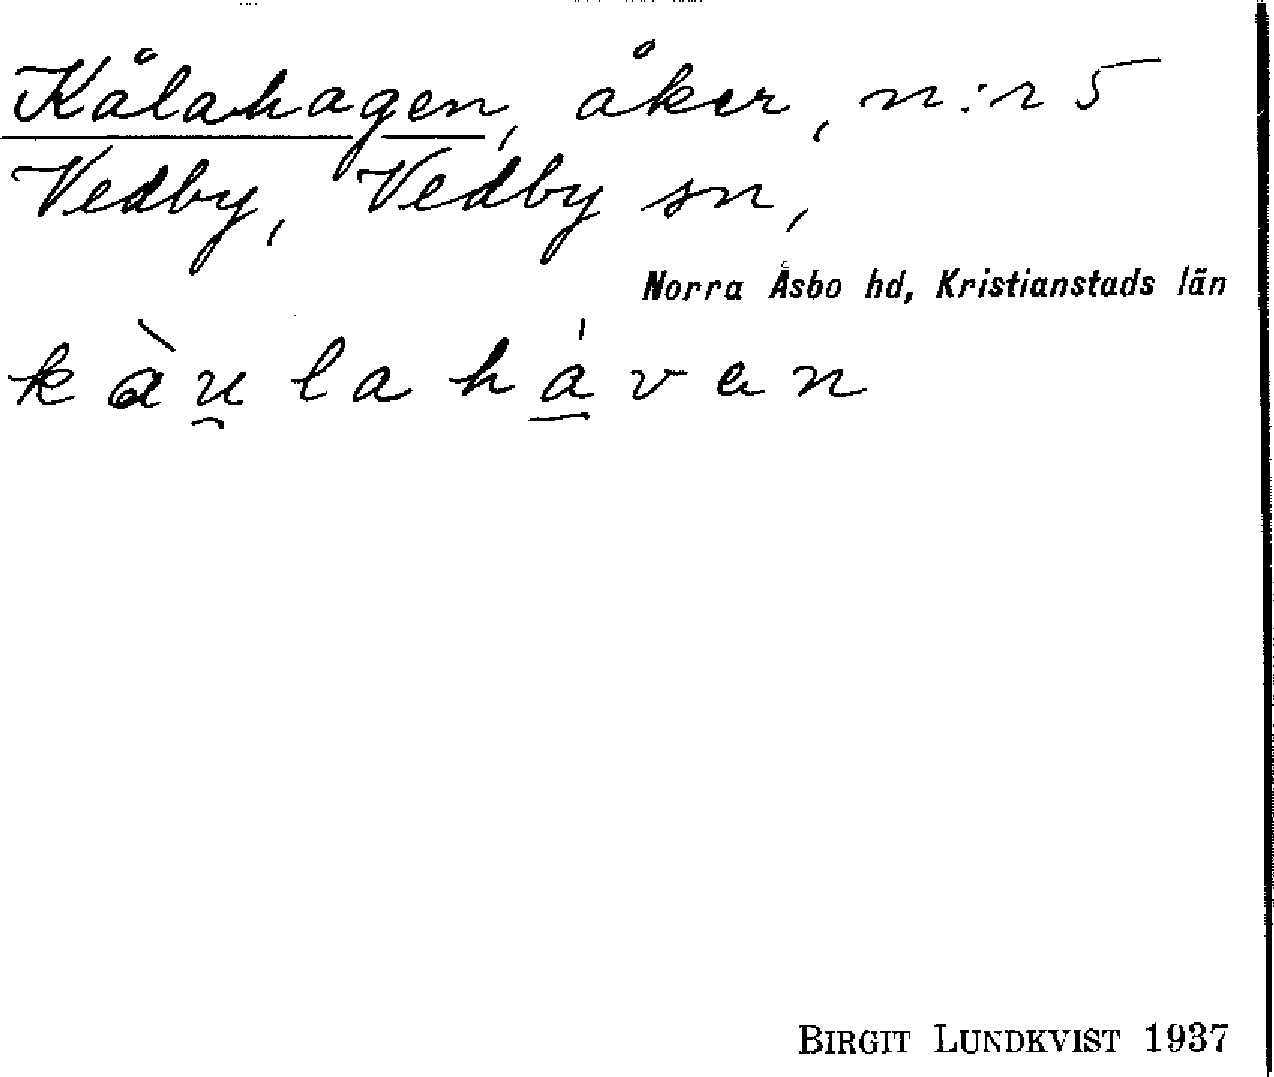 Kålahagen, åker, n:r 5
Vedby, Vedby sn,
Norra Åsbo hd, Kristianstads län
kàu̯lahá̱van
BIRGIT LUNDKVIST 1937